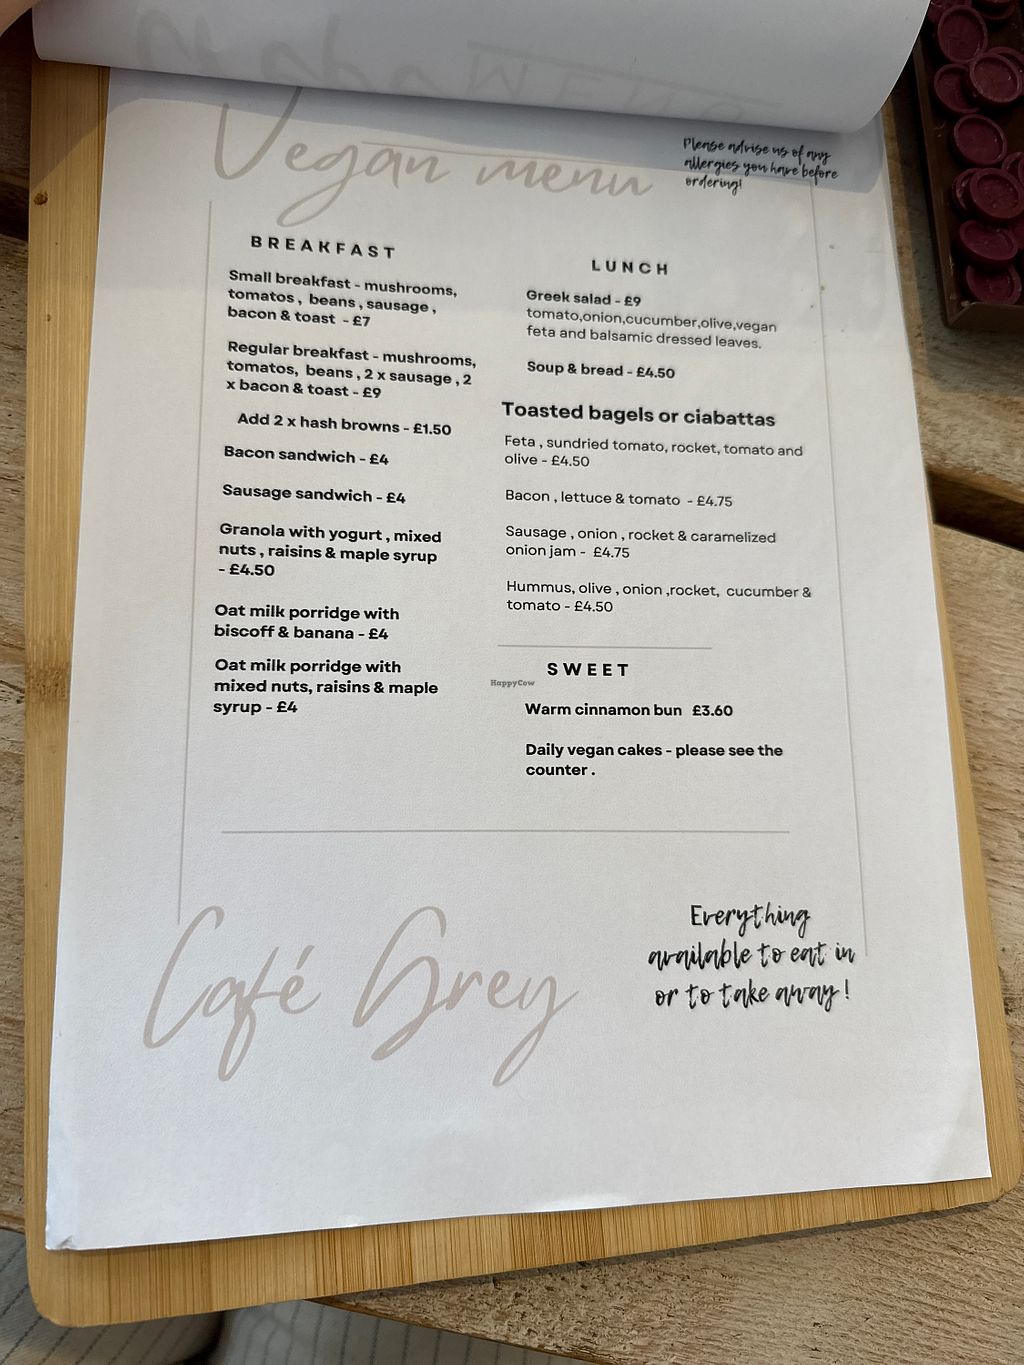 Vegan menu
Please advise us of any
allergies you have before
ordering!
BREAKFAST
Small breakfast - mushrooms,
tomatos , beans , sausage ,
bacon & toast - £7
Regular breakfast - mushrooms,
tomatos, beans , 2 x sausage , 2
x bacon & toast - £9
Add 2 x hash browns - £1.50
Bacon sandwich - £4
Sausage sandwich - £4
Granola with yogurt , mixed
nuts , raisins & maple syrup
- £4.50
Oat milk porridge with
biscoff & banana - £4
Oat milk porridge with
mixed nuts, raisins & maple
syrup - £4
LUNCH
Greek salad - £9
tomato,onion,cucumber,olive,vegan
feta and balsamic dressed leaves.
Soup & bread - £4.50
Toasted bagels or ciabattas
Feta , sundried tomato, rocket, tomato and
olive - £4.50
Bacon , lettuce & tomato - £4.75
Sausage , onion , rocket & caramelized
onion jam - £4.75
Hummus, olive , onion ,rocket, cucumber &
tomato - £4.50
SWEET
HappyCow
Warm cinnamon bun £3.60
Daily vegan cakes - please see the
counter .
Café Grey
Everything
available to eat in
or to take away !